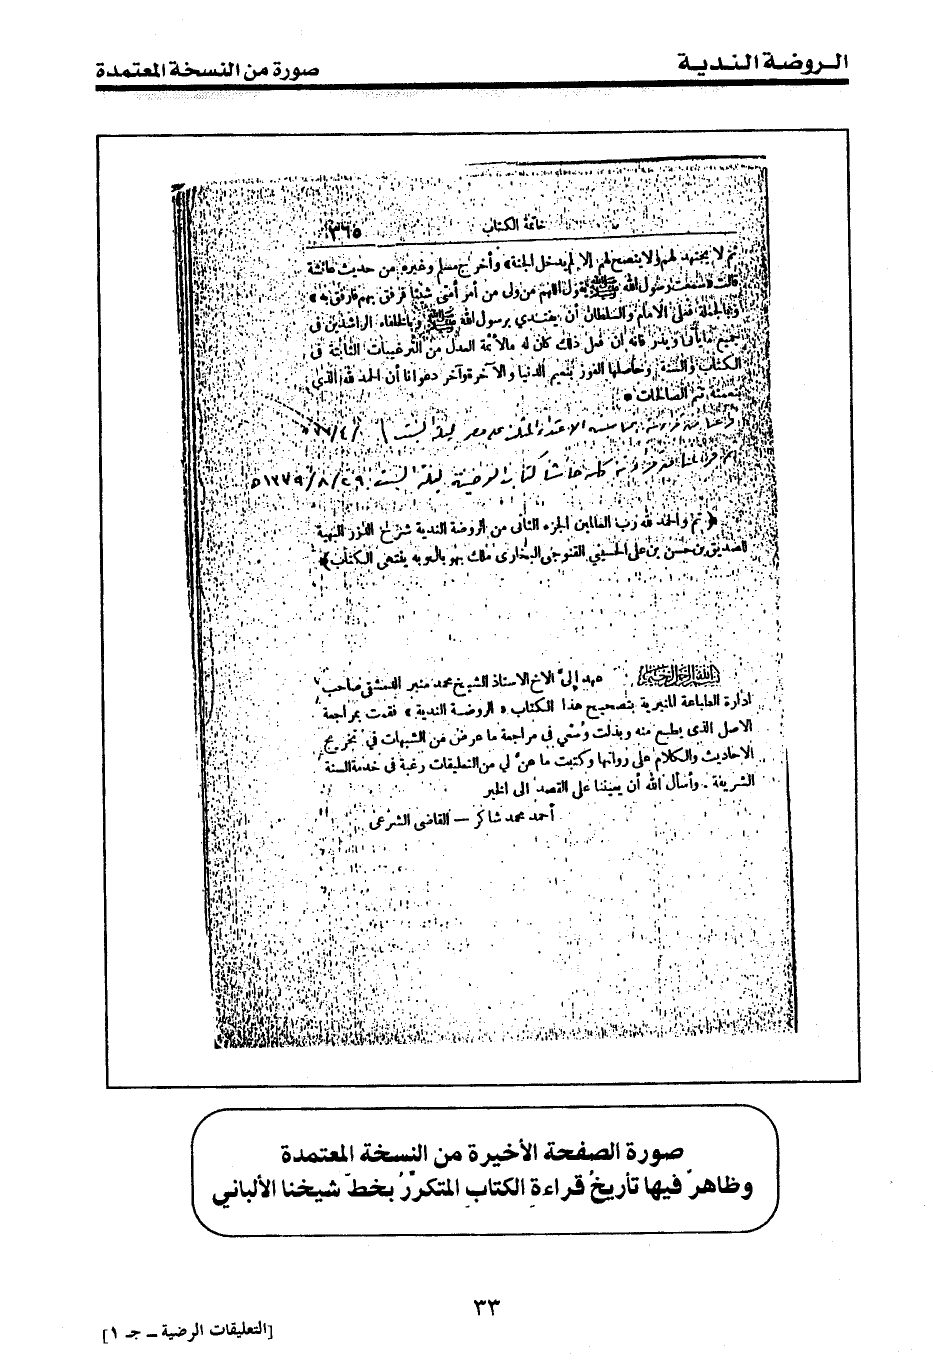 الـروضـة النـديـة
صورة من النسخة المعتمدة
خاتمة الكتاب
٣٦٥
ثم لا يجتهد لهم ولا ينصح لهم إلا لم يدخل الجنة» وأخرج مسلم وغيره من حديث عائشة
قالت «سمعت رسول الله ﷺ يقول اللهم من ولي من أمر أمتي شيئا فرفق بهم فارفق به»
وبالجملة فعلى الامام والسلطان أن يقتدي برسول الله ﷺ وبالخلفاء الراشدين في
جميع ما يأتي ويذر فانه ان فعل ذلك كان له ما لأئمة العدل من الترغيبات الثابتة في
الكتاب والسنة وحاصلها الفوز بنعيم الدنيا والآخرة وآخر دعوانا أن الحمد لله الذي
بنعمته تتم الصالحات *
ليلة السبت
كتاب الروضة ليلة السبت ٢٩/٨/١٣٧٩ه
﴿ تم والحمد لله رب العالمين الجزء الثاني من الروضة الندية شرح الدرر البهية
لصديق بن حسن بن علي الحسيني القنوجي البخارى ملك بهوبال وبه ينتهى الكتاب ﴾
بسم الله الرحمن الرحيم عهد إليّ الاخ الاستاذ الشيخ محمد منير الدمشقي صاحب
ادارة الطباعة المنيرية بتصحيح هذا الكتاب « الروضة الندية » فقمت بمراجعة
الاصل الذى يطبع منه وبذلت وسعي في مراجعة ما عرض من الشبهات في تخريج
الاحاديث والكلام على رواتها وكتبت ما عنّ لي من التعليقات رغبة في خدمة السنة
الشريفة . وأسأل الله أن يعيننا على القصد الى الخير
أحمد محمد شاكر — القاضى الشرعى
صورة الصفحة الأخيرة من النسخة المعتمدة
وظاهرٌ فيها تأريخُ قراءةِ الكتابِ المتكرّرُ بخطّ شيخنا الألباني
٣٣
[التعليقات الرضية ـ جـ ١]